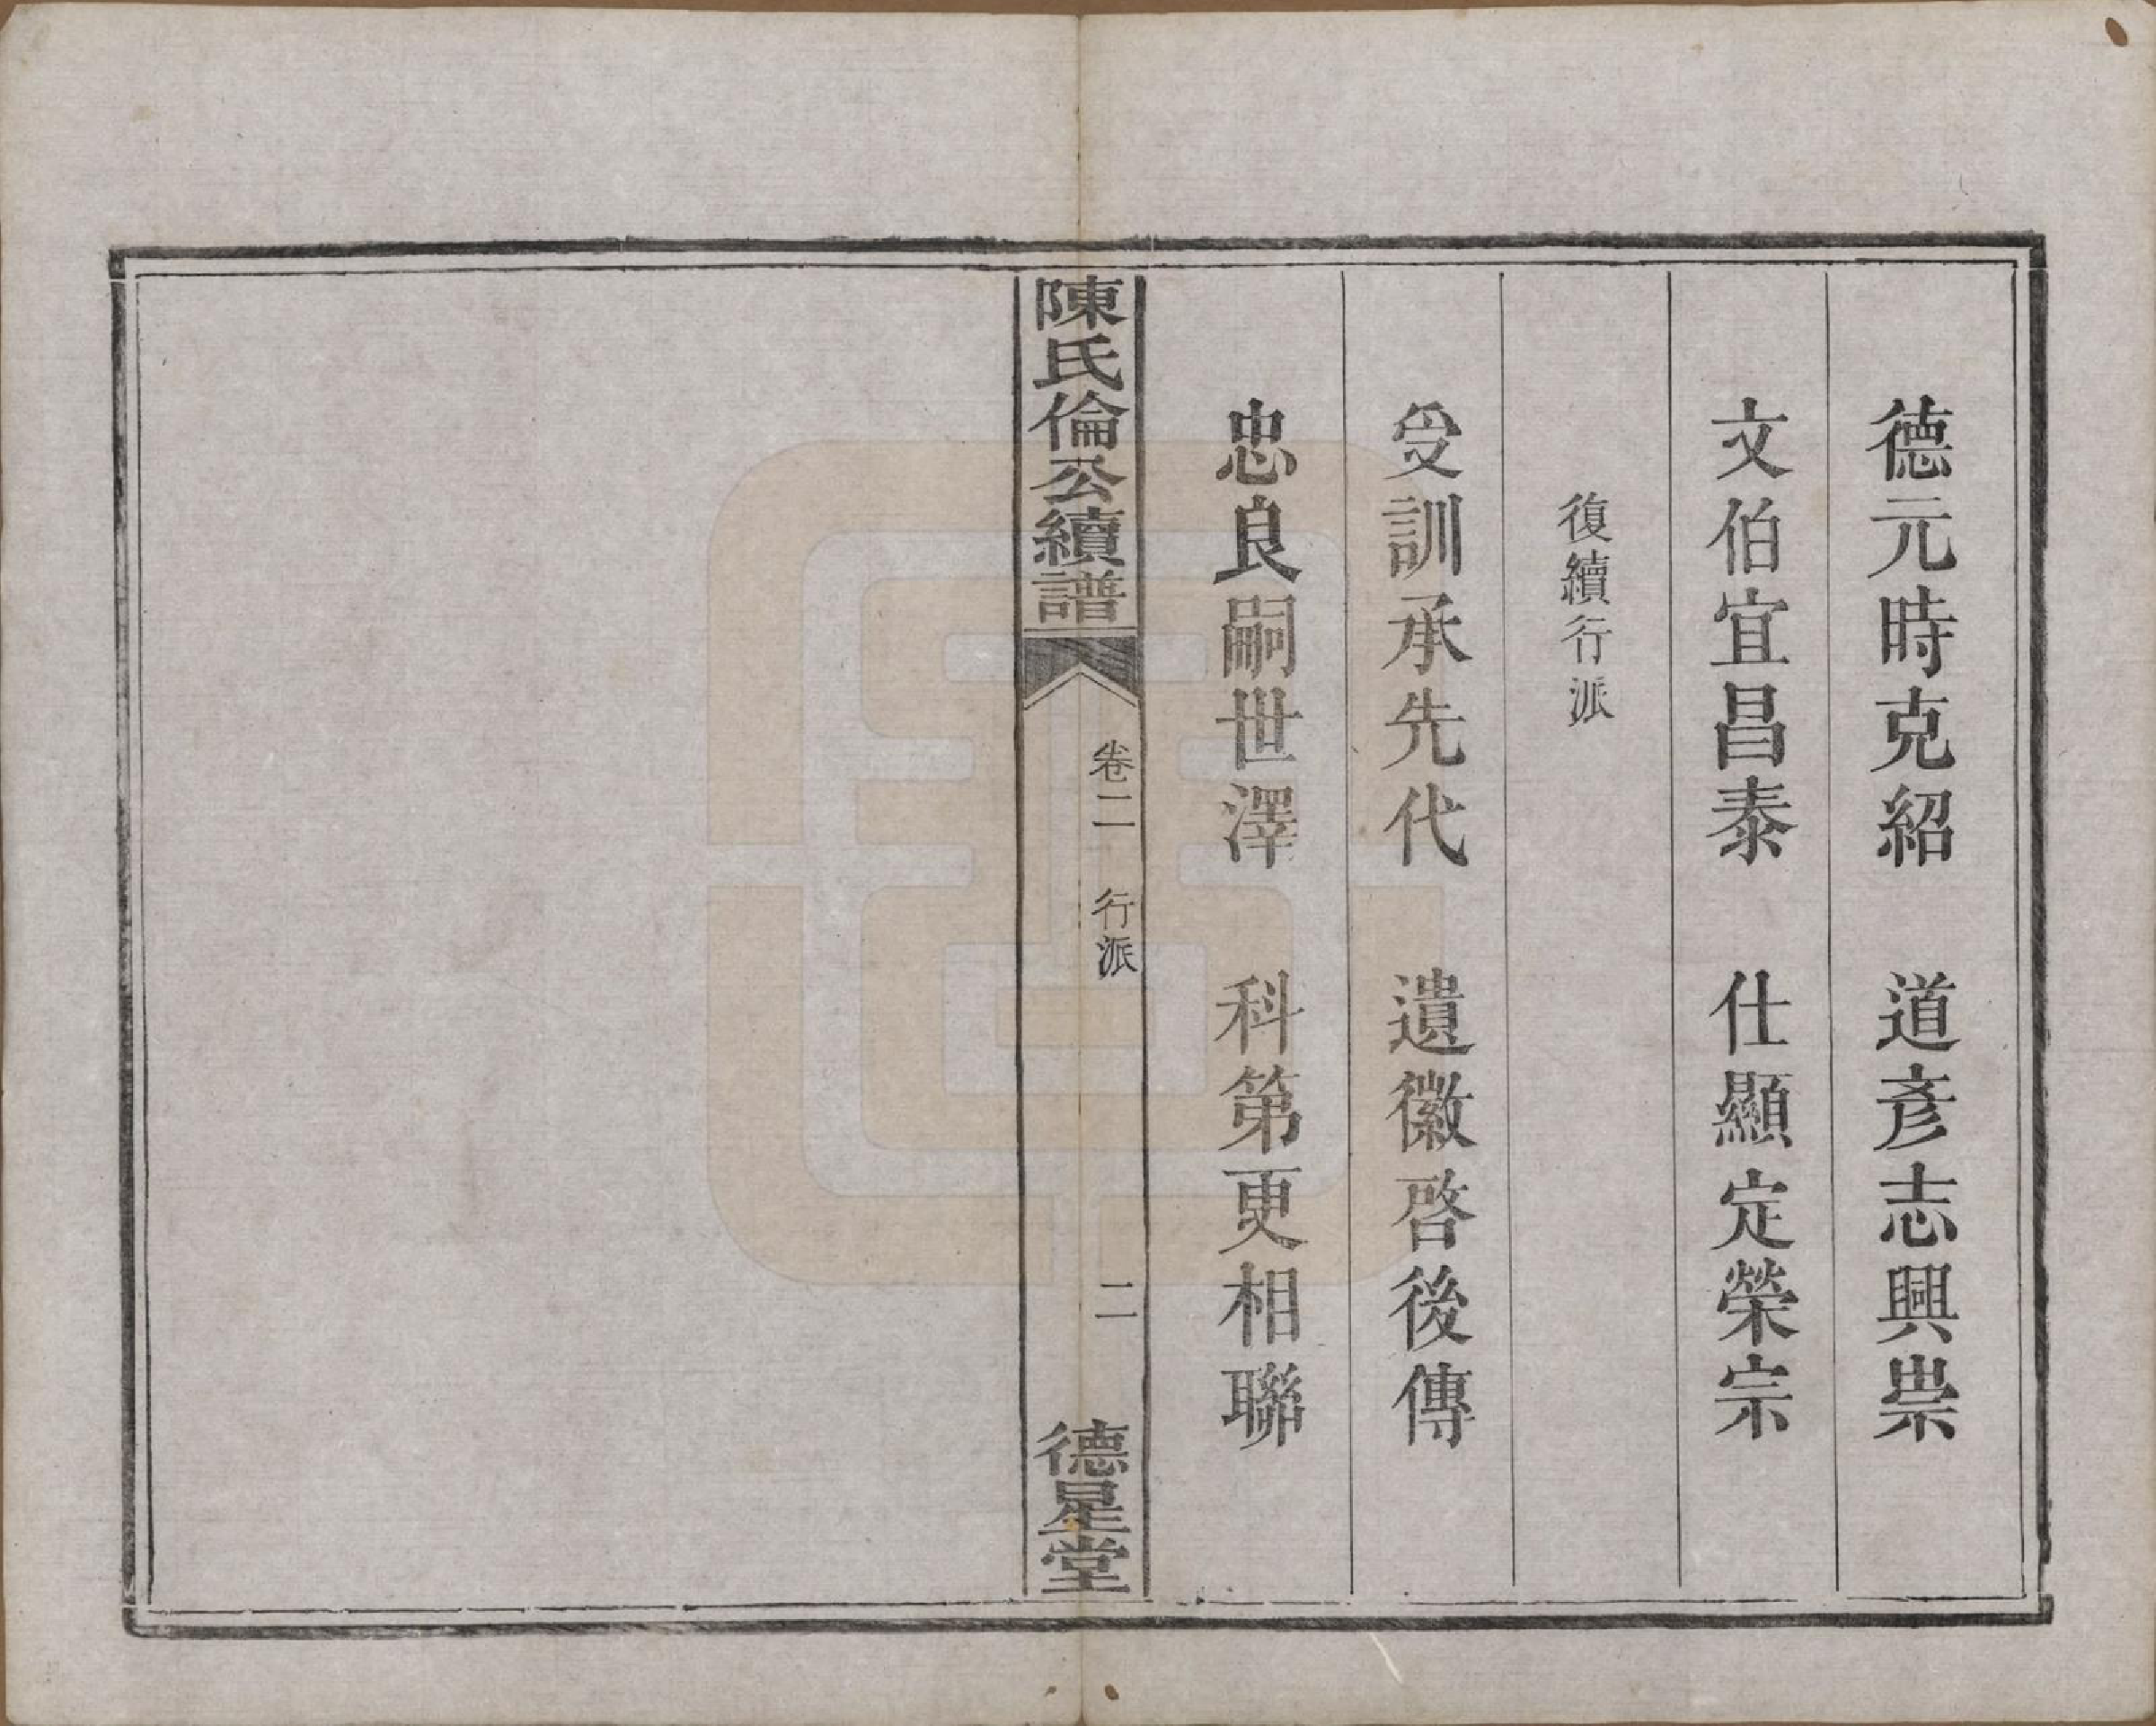 德元時克紹　道彥志興崇
文伯宜昌泰　仕顯定榮宗
復續行派
受訓承先代　遺徽啓後傳
忠良嗣世澤　科第更相聯
陳氏倫公續譜　卷二　行派　二　德星堂